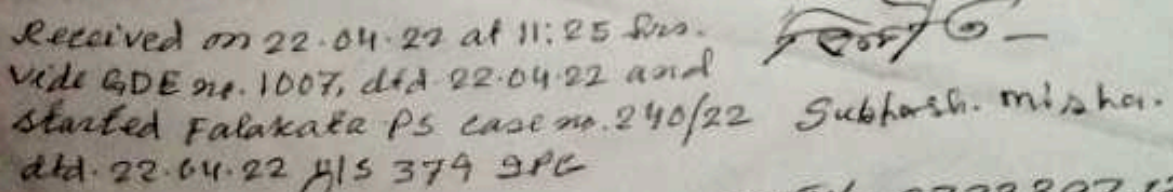 Received on 22.04.22 at 11:25 hrs.
vide GDE no. 1007, dtd 22.04.22 and
started Falakata PS case no. 240/22
dtd. 22.04.22 U/S 379 IPC
Subhash. misha.